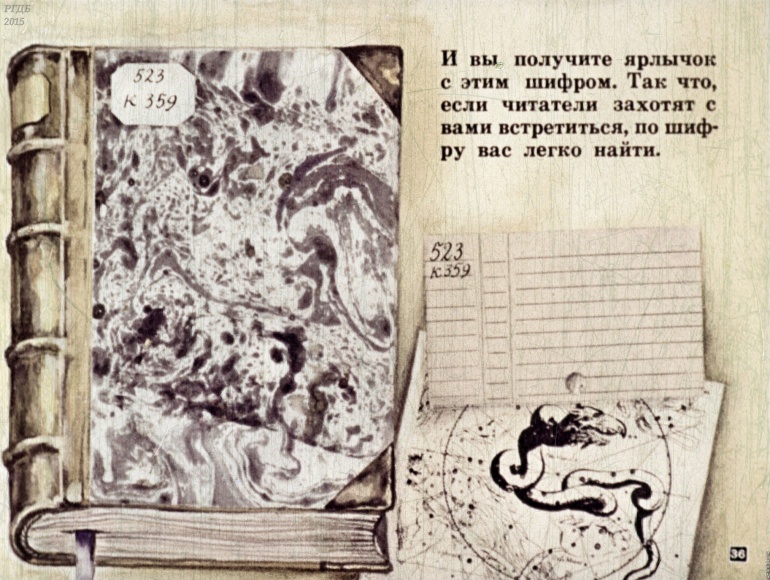 РГДБ
2015
523
К 359
И вы получите ярлычок
с этим шифром. Так что,
если читатели захотят с
вами встретиться, по шиф-
ру вас легко найти.
523
К.359
36